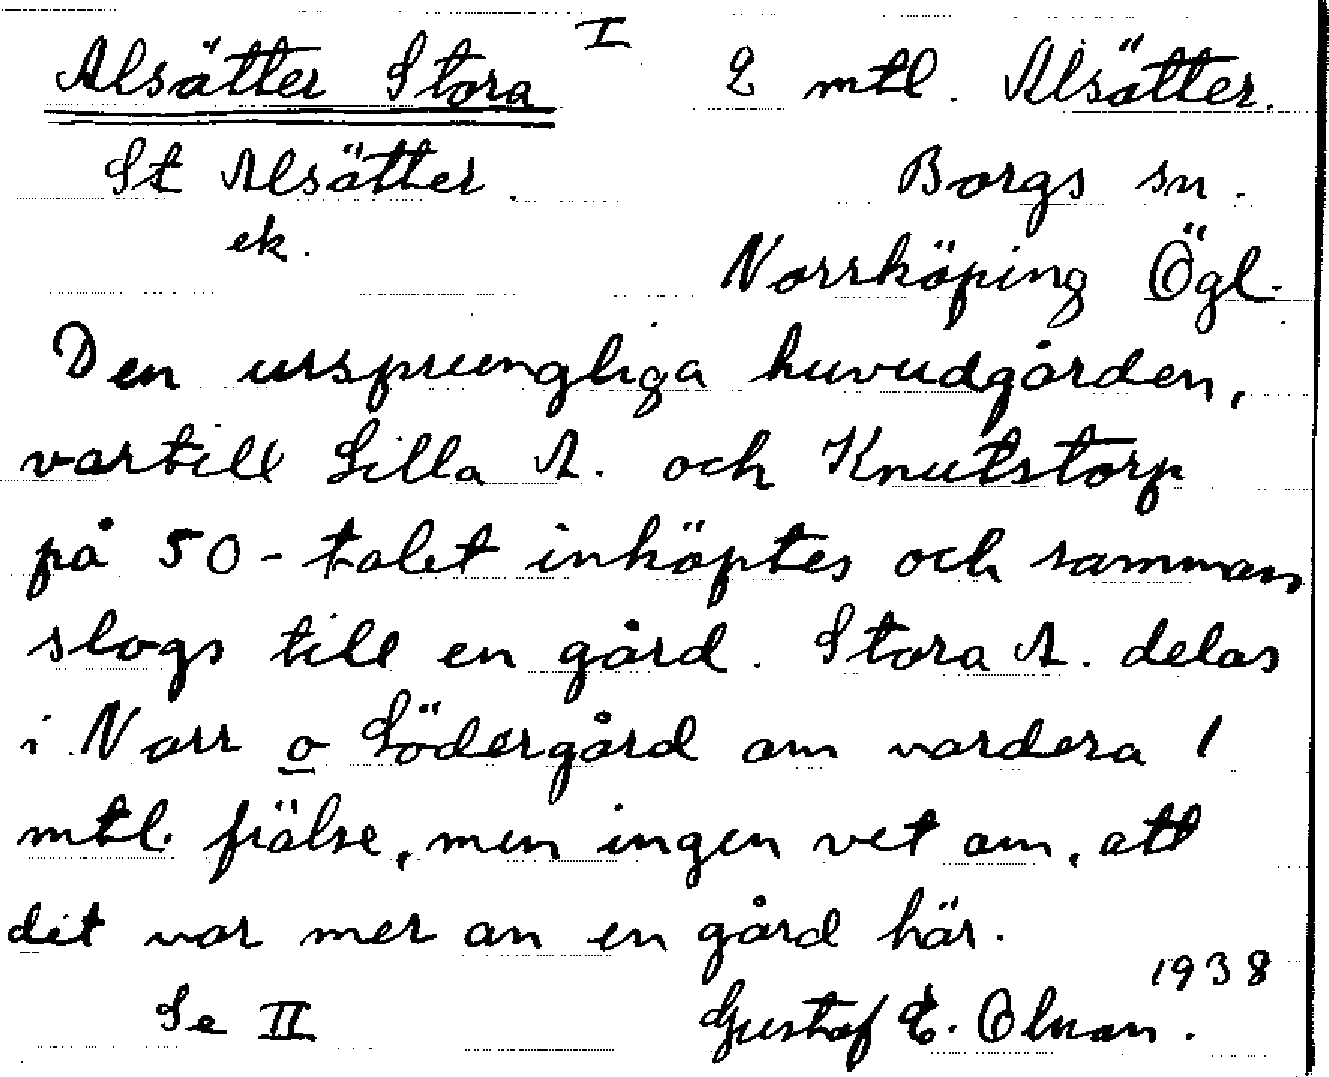 I
Alsätter Stora 2 mtl. Alsätter.
St Alsätter. Borgs sn.
ek.
Norrköping Ögl.
Den ursprungliga huvudgården,
vartill Lilla A. och Knutstorp
på 50-talet inköptes och samman
slogs till en gård. Stora A. delas
i Norr o Södergård om vardera 1
mtl. frälse, men ingen vet om, att
det var mer än en gård här.
1938
Se II Gustaf E. Olman.